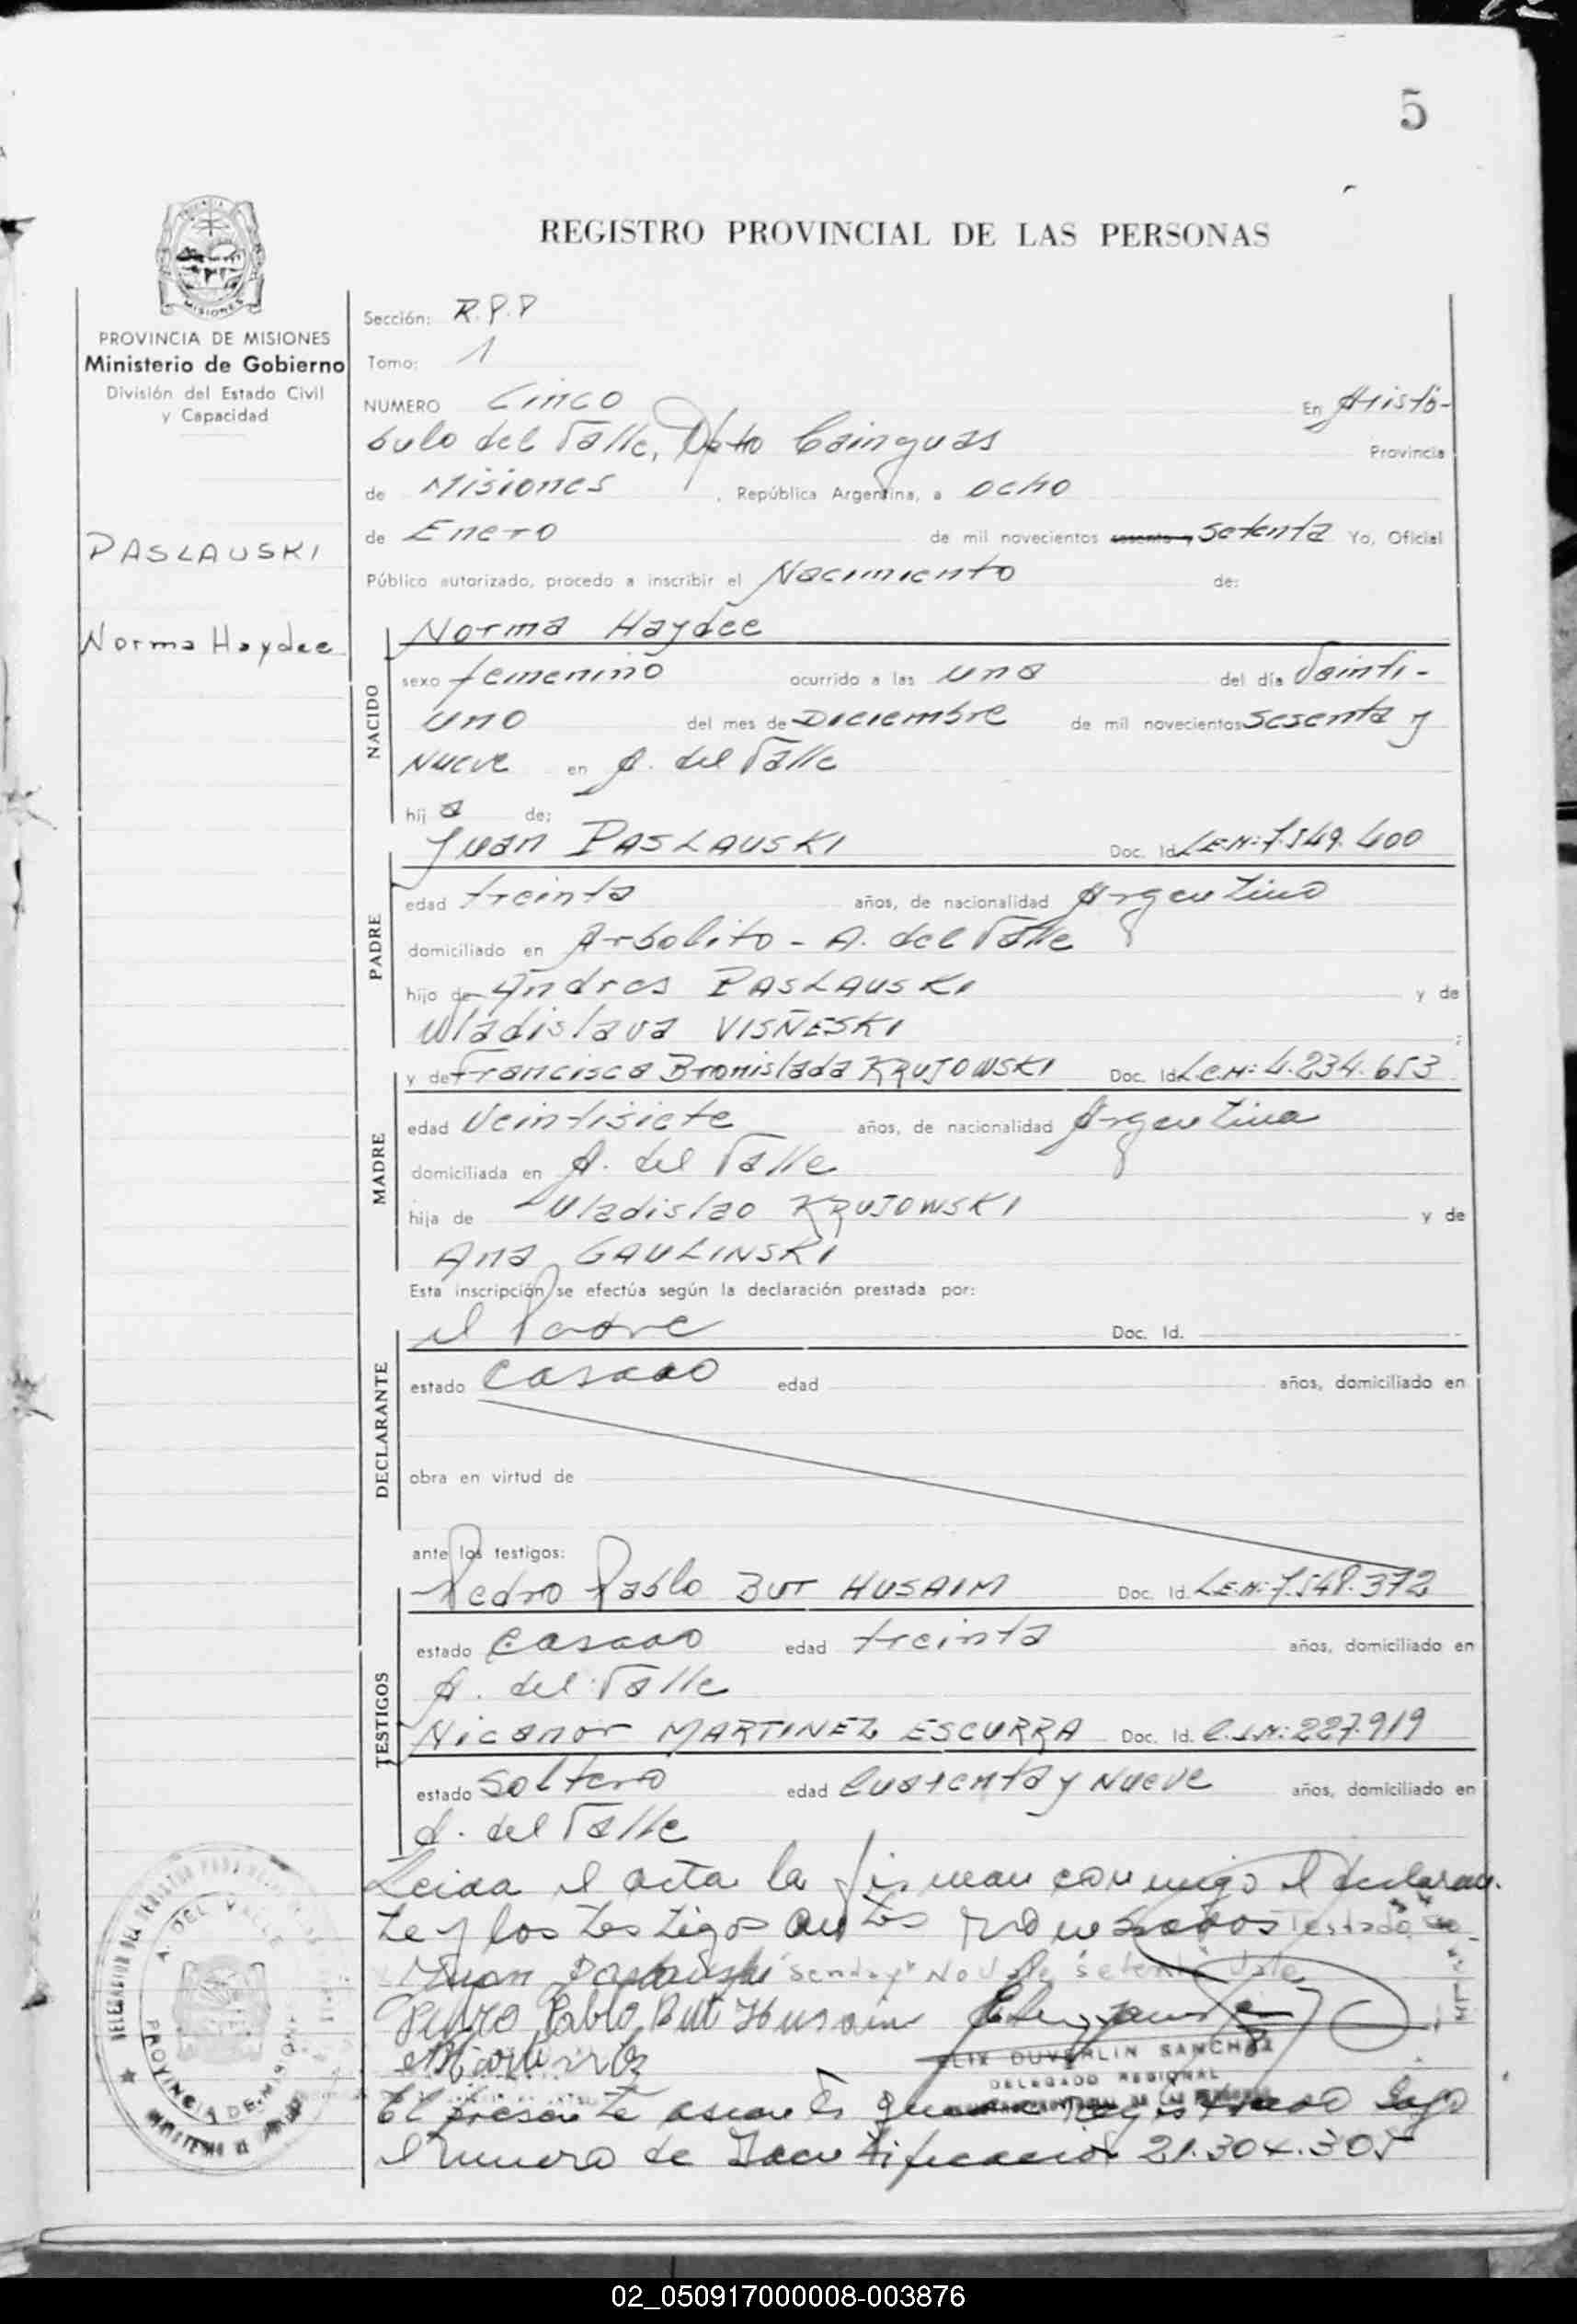 5
REGISTRO PROVINCIAL DE LAS PERSONAS
MISIONES
PROVINCIA DE MISIONES
Ministerio de Gobierno
División del Estado Civil
y Capacidad
PASLAUSKI
Norma Haydee
Sección: R.P.P
Tomo: 1
NUMERO Cinco En Aristó-
bulo del Valle, Dpto Cainguas Provincia
de Misiones, República Argentina, a ocho
de Enero de mil novecientos sesenta y setenta Yo, Oficial
Público autorizado, procedo a inscribir el Nacimiento de:
Norma Haydee
NACIDO
sexo femenino ocurrido a las una del día Veinti-
uno del mes de Diciembre de mil novecientos sesenta y
Nueve en A. del Valle
hij a de:
Juan PASLAUSKI Doc. Id. L.E.N: 7.549.400
PADRE
edad treinta años, de nacionalidad Argentino
domiciliado en Arbolito - A. del Valle
hijo de Andres PASLAUSKI y de
Wladislava VISÑESKI
y de Francisca Bronislada KRUJOWSKI Doc. Id. L.C.N: 4.234.653
MADRE
edad Veintisiete años, de nacionalidad Argentina
domiciliada en A. del Valle
hija de Uladislao KRUJOWSKI y de
Ana GAULINSKI
Esta inscripción se efectúa según la declaración prestada por:
el Padre Doc. Id.
DECLARANTE
estado casado edad años, domiciliado en
obra en virtud de
ante los testigos:
Pedro Pablo BUT HUSAIM Doc. Id. L.E.N: 7.548.372
TESTIGOS
estado casado edad treinta años, domiciliado en
A. del Valle
Nicanor MARTINEZ ESCURRA Doc. Id. C.I.N: 227.919
estado soltero edad Cuarenta y Nueve años, domiciliado en
A. del Valle
Leida el acta la firman conmigo el declaran-
te y los testigos antes Testado
Juan Paslauski No Vale setenta Vale
Pedro Pablo But Husaim
FELIX DUVERLIN SANCHEZ
DELEGADO REGIONAL
A. DEL VALLE
PROVINCIA DE MISIONES
El presente asiento queda registrado bajo
el Numero de Identificacion 21.304.305
02_050917000008-003876